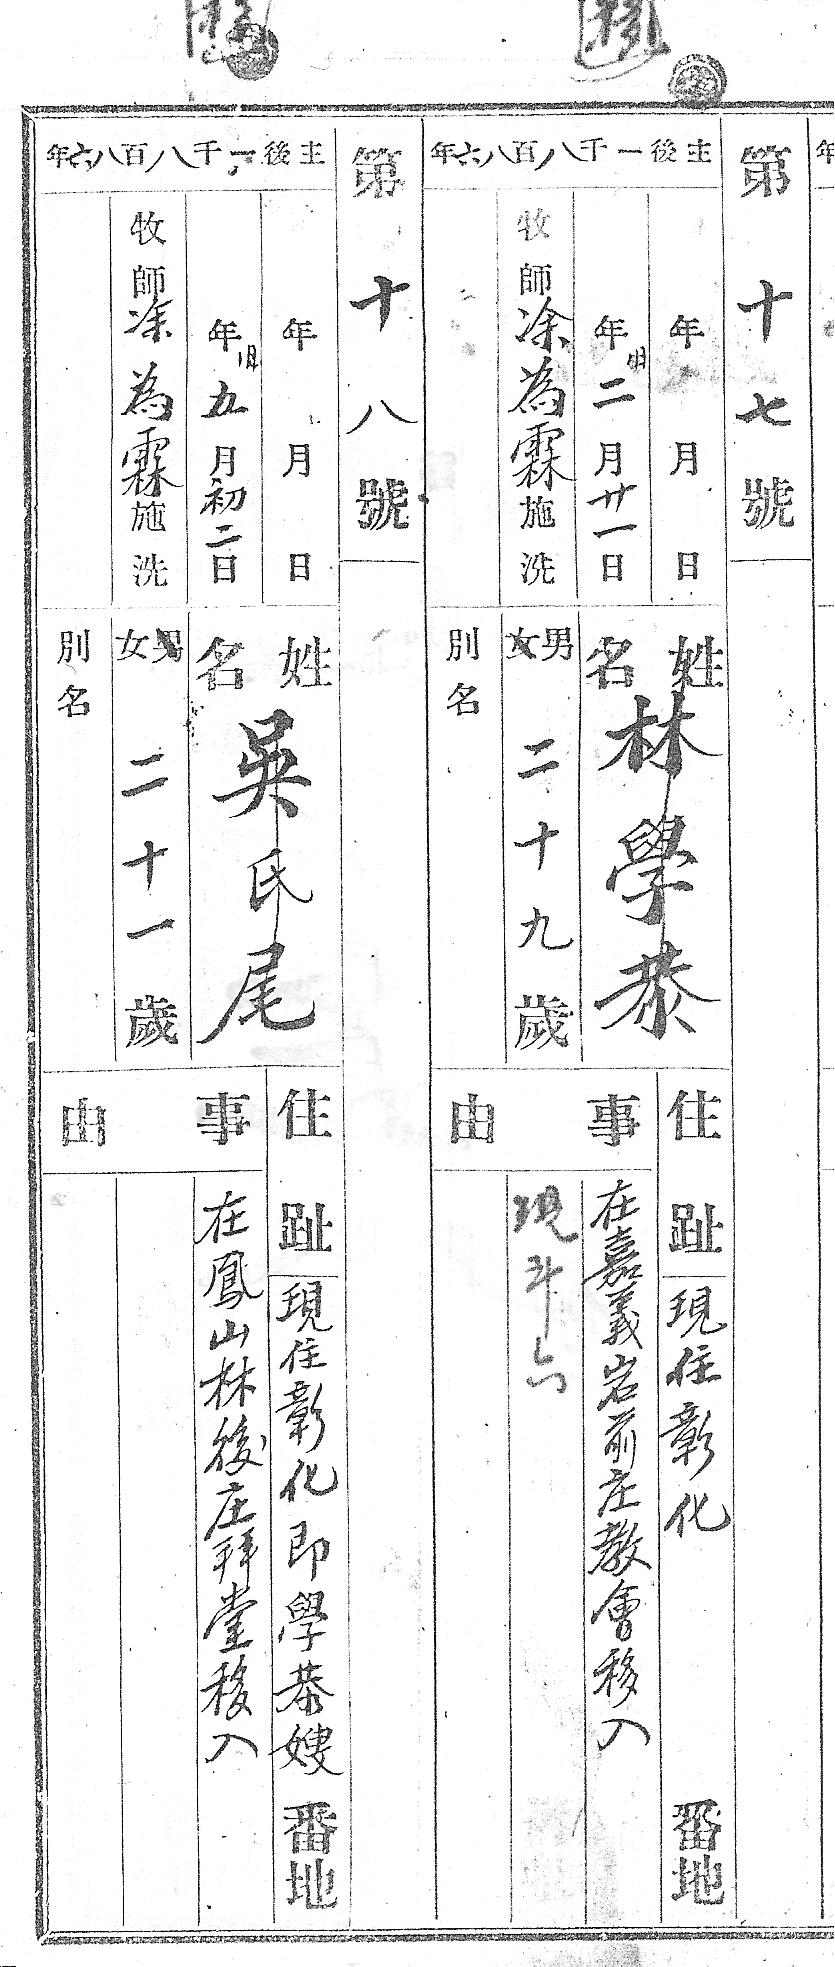 第十七號
主後一千八百八六年
年 月 日
年旧二月廿一日
牧師凃為霖施洗
姓名 林學恭
男女 二十九歲
別名
住趾 現住彰化 番地
事由
在嘉義岩前庄教會移入
現斗六
第十八號
主後一千八百八六年
年 月 日
年旧五月初二日
牧師凃為霖施洗
姓名 吳氏尾
男女 二十一歲
別名
住趾 現住彰化即學恭嫂 番地
事由
在鳳山林後庄拜堂移入